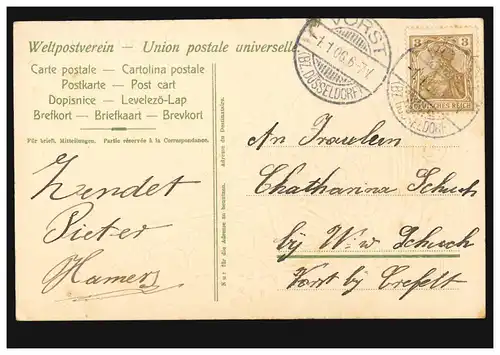 Weltpostverein - Union postale universelle
Carte postale — Cartolina postale
Postkarte — Post cart
Dopisnice — Levelező-Lap
Brefkort — Briefkaart — Brevkort
Für briefl. Mitteilungen. Partie réservée à la Correspondance.
Zendet
Pieter
Hamers
Nur für die Adresse zu benutzen. Adresse du Destinataire.
VORST
1.1.06.6-7V
(BZ. DÜSSELDORF)
3 3
DEUTSCHES REICH
(BZ. DÜSSELDORF)
An Fraulein
Chatharina Schuch
bij Ww Schuch
Vorst by Crefelt